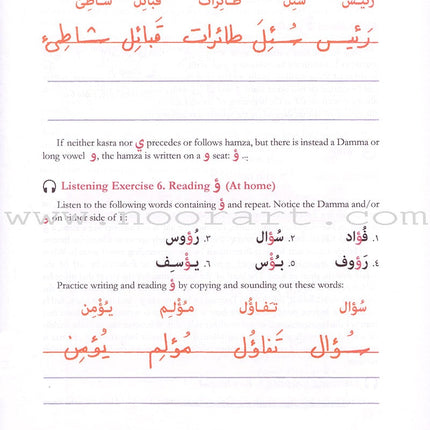 رَئيس سُئِلَ طائرات قَبائِل شاطِئ
رَئيس سُئِلَ طائرات قَبائِل شاطِئ
If neither kasra nor ي precedes or follows hamza, but there is instead a Damma or
long vowel و, the hamza is written on a و seat: ؤ ..
Listening Exercise 6. Reading ؤ (At home)
Listen to the following words containing ؤ and repeat. Notice the Damma and/or
و on either side of it:
www.noorart.com
١. فُؤاد ٢. سُؤال ٣. رُؤوس
٤. رَؤوف ٥. بُؤْس ٦. يُؤسِف
Practice writing and reading ؤ by copying and sounding out these words:
سُؤال تَفاؤُل مُؤْلِم يُؤْمِن
سُؤال تَفاؤُل مُؤلِم يُؤمِن